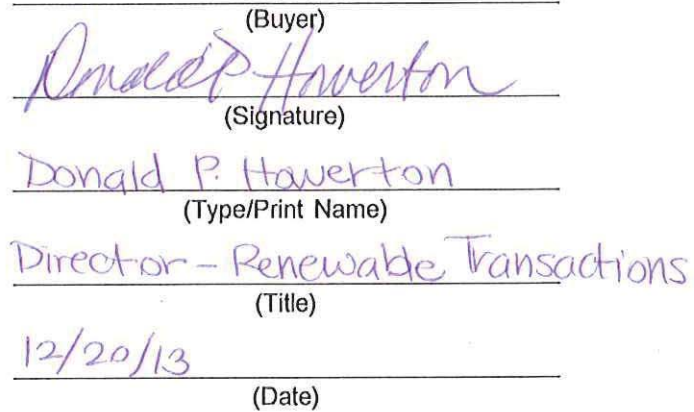 (Buyer)
Donald P Howerton
(Signature)
Donald P. Howerton
(Type/Print Name)
Director - Renewable Transactions
(Title)
12/20/13
(Date)